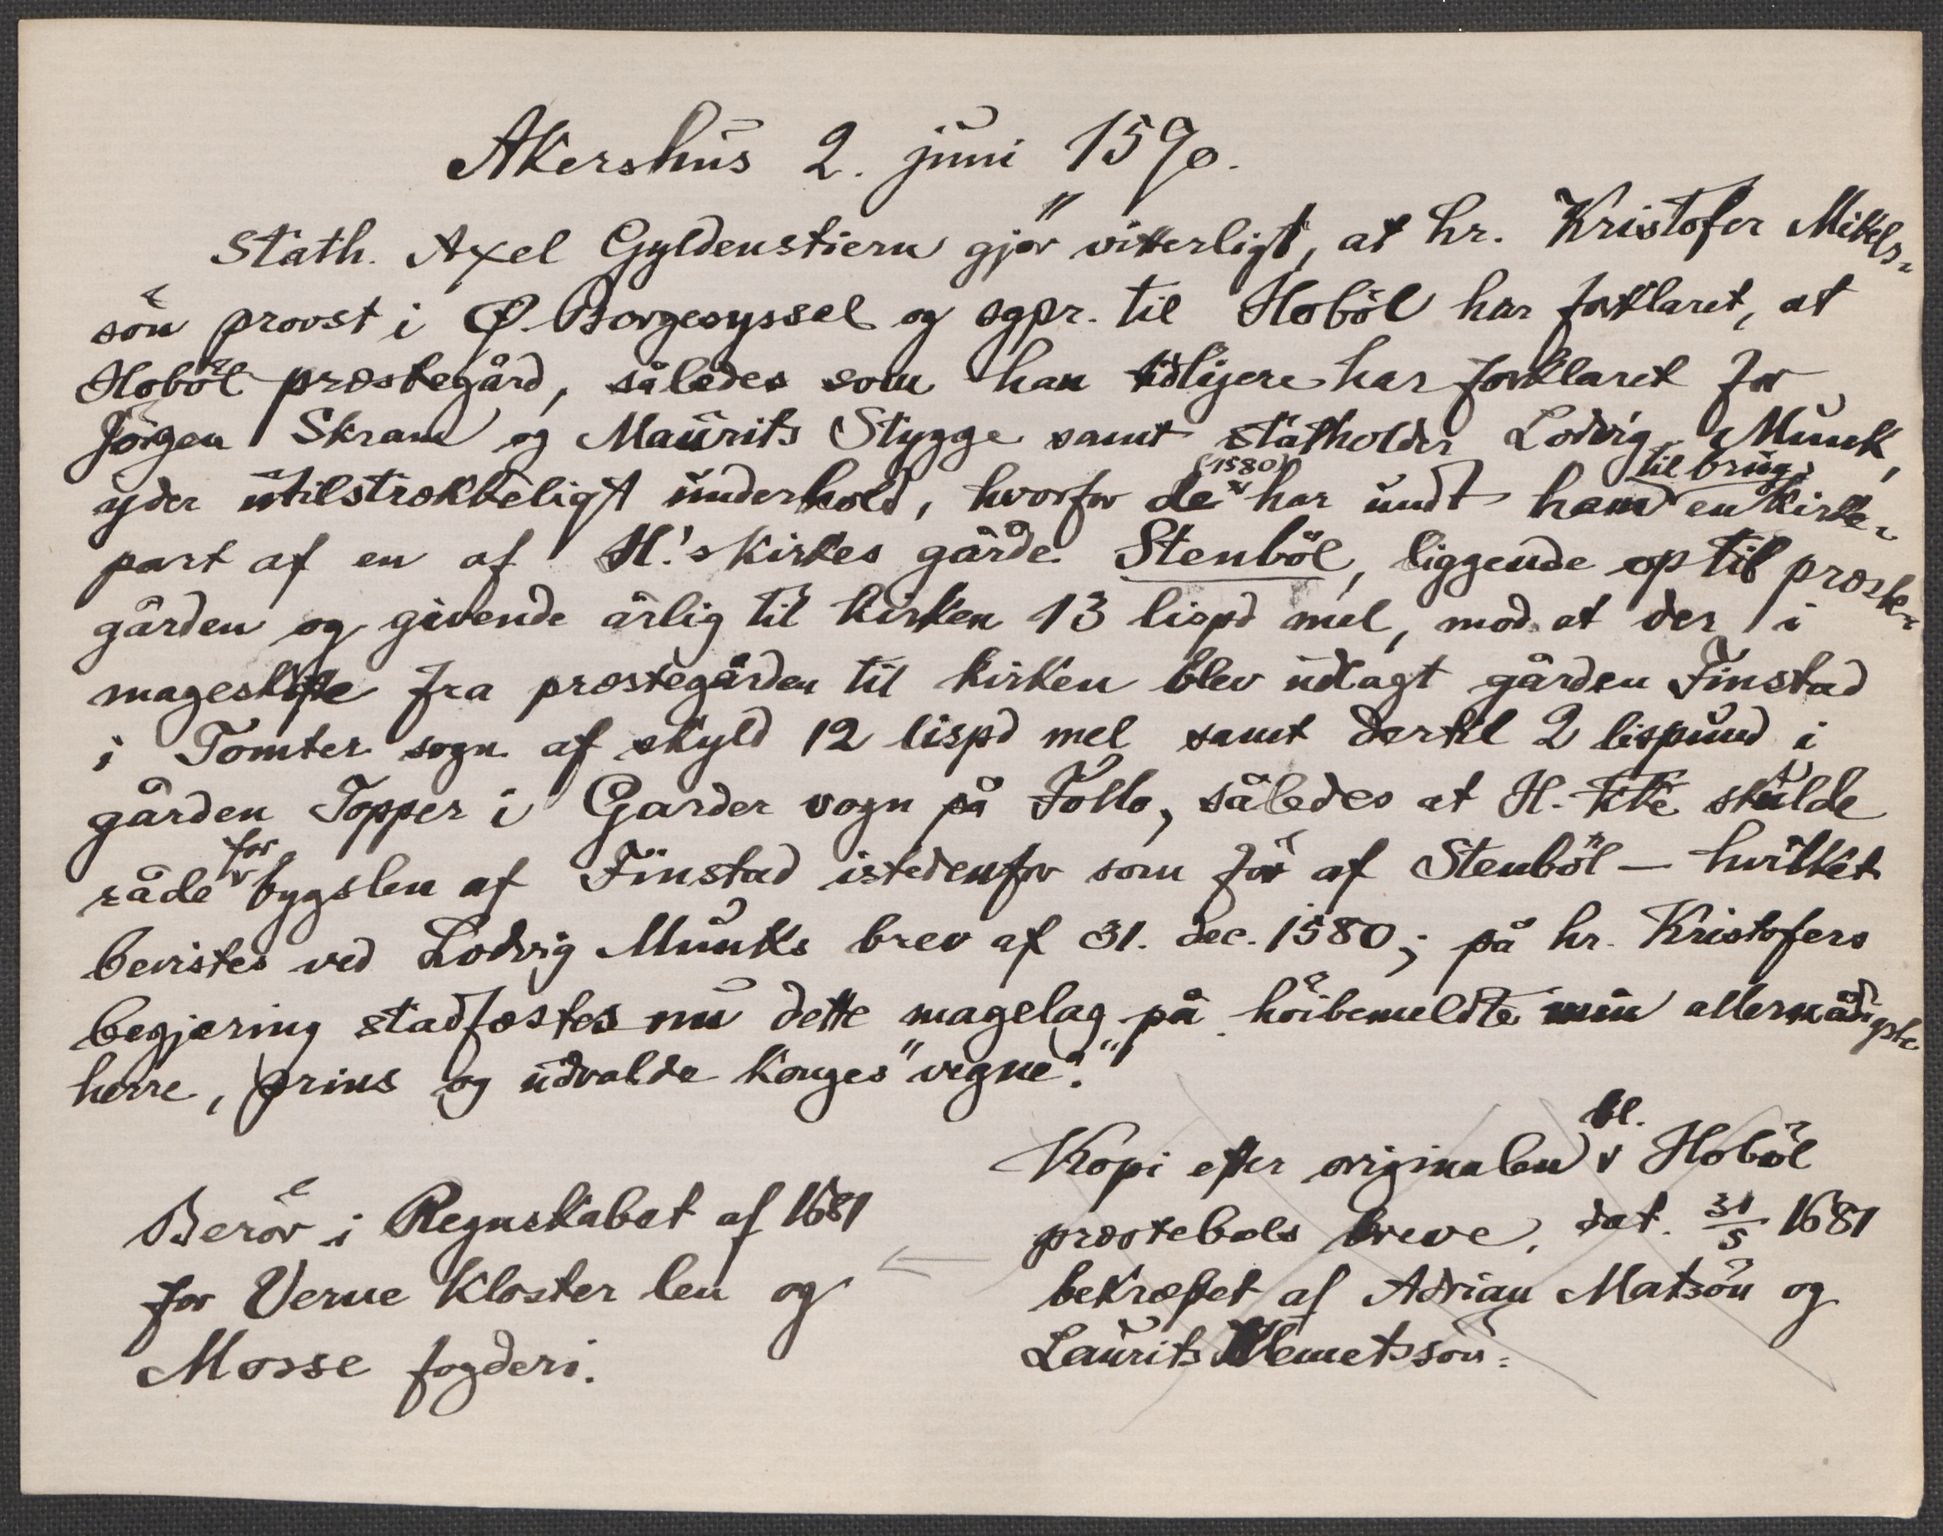 Akershus 2. juni 1590.
Stath. Axel Gyldenstiern gjör vitterligt, at hr. Kristofer Mikels-
sön provst i Ø. Borgesyssel og sgpr. til Hoböl har forklaret, at
Hoböl præstegård, således som han tidligere har forklaret for
Jörgen Skram og Maurits Stygge samt statholder Lodvig Munk,
yder utilstrækkeligt underhold, hvorfor de (1580) har undt ham til brug en kirke-
part af en af H.'s kirkes gårde Stenböl, liggende op til præste-
gården og givende årlig til kirken 13 lispd mel, mod at der i
mageskifte fra præstegården til kirken blev udlagt gården Finstad
i Tomter sogn af skyld 12 lispd mel samt dertil 2 lispund i
gården Topper i Garder sogn på Follo, således at H. kke skulde
råde for bygslen af Finstad istedenfor som för af Stenböl – hvilket
bevistes ved Lodvig Munks brev af 31. dec. 1580; på hr. Kristofers
begjæring stadfæstes nu dette magelag på "höibemeldte min allernådigste
herre, prins og udvalde konges "vegne".
Kopi efter originalen bl. Hoböl
præstebols breve, dat. 31/5 1681
bekræftet af Adrian Matsön og
Laurits Klemetssön.
Beror i Regnskabet af 1681
for Verne Kloster len og
Mosse fogderi.